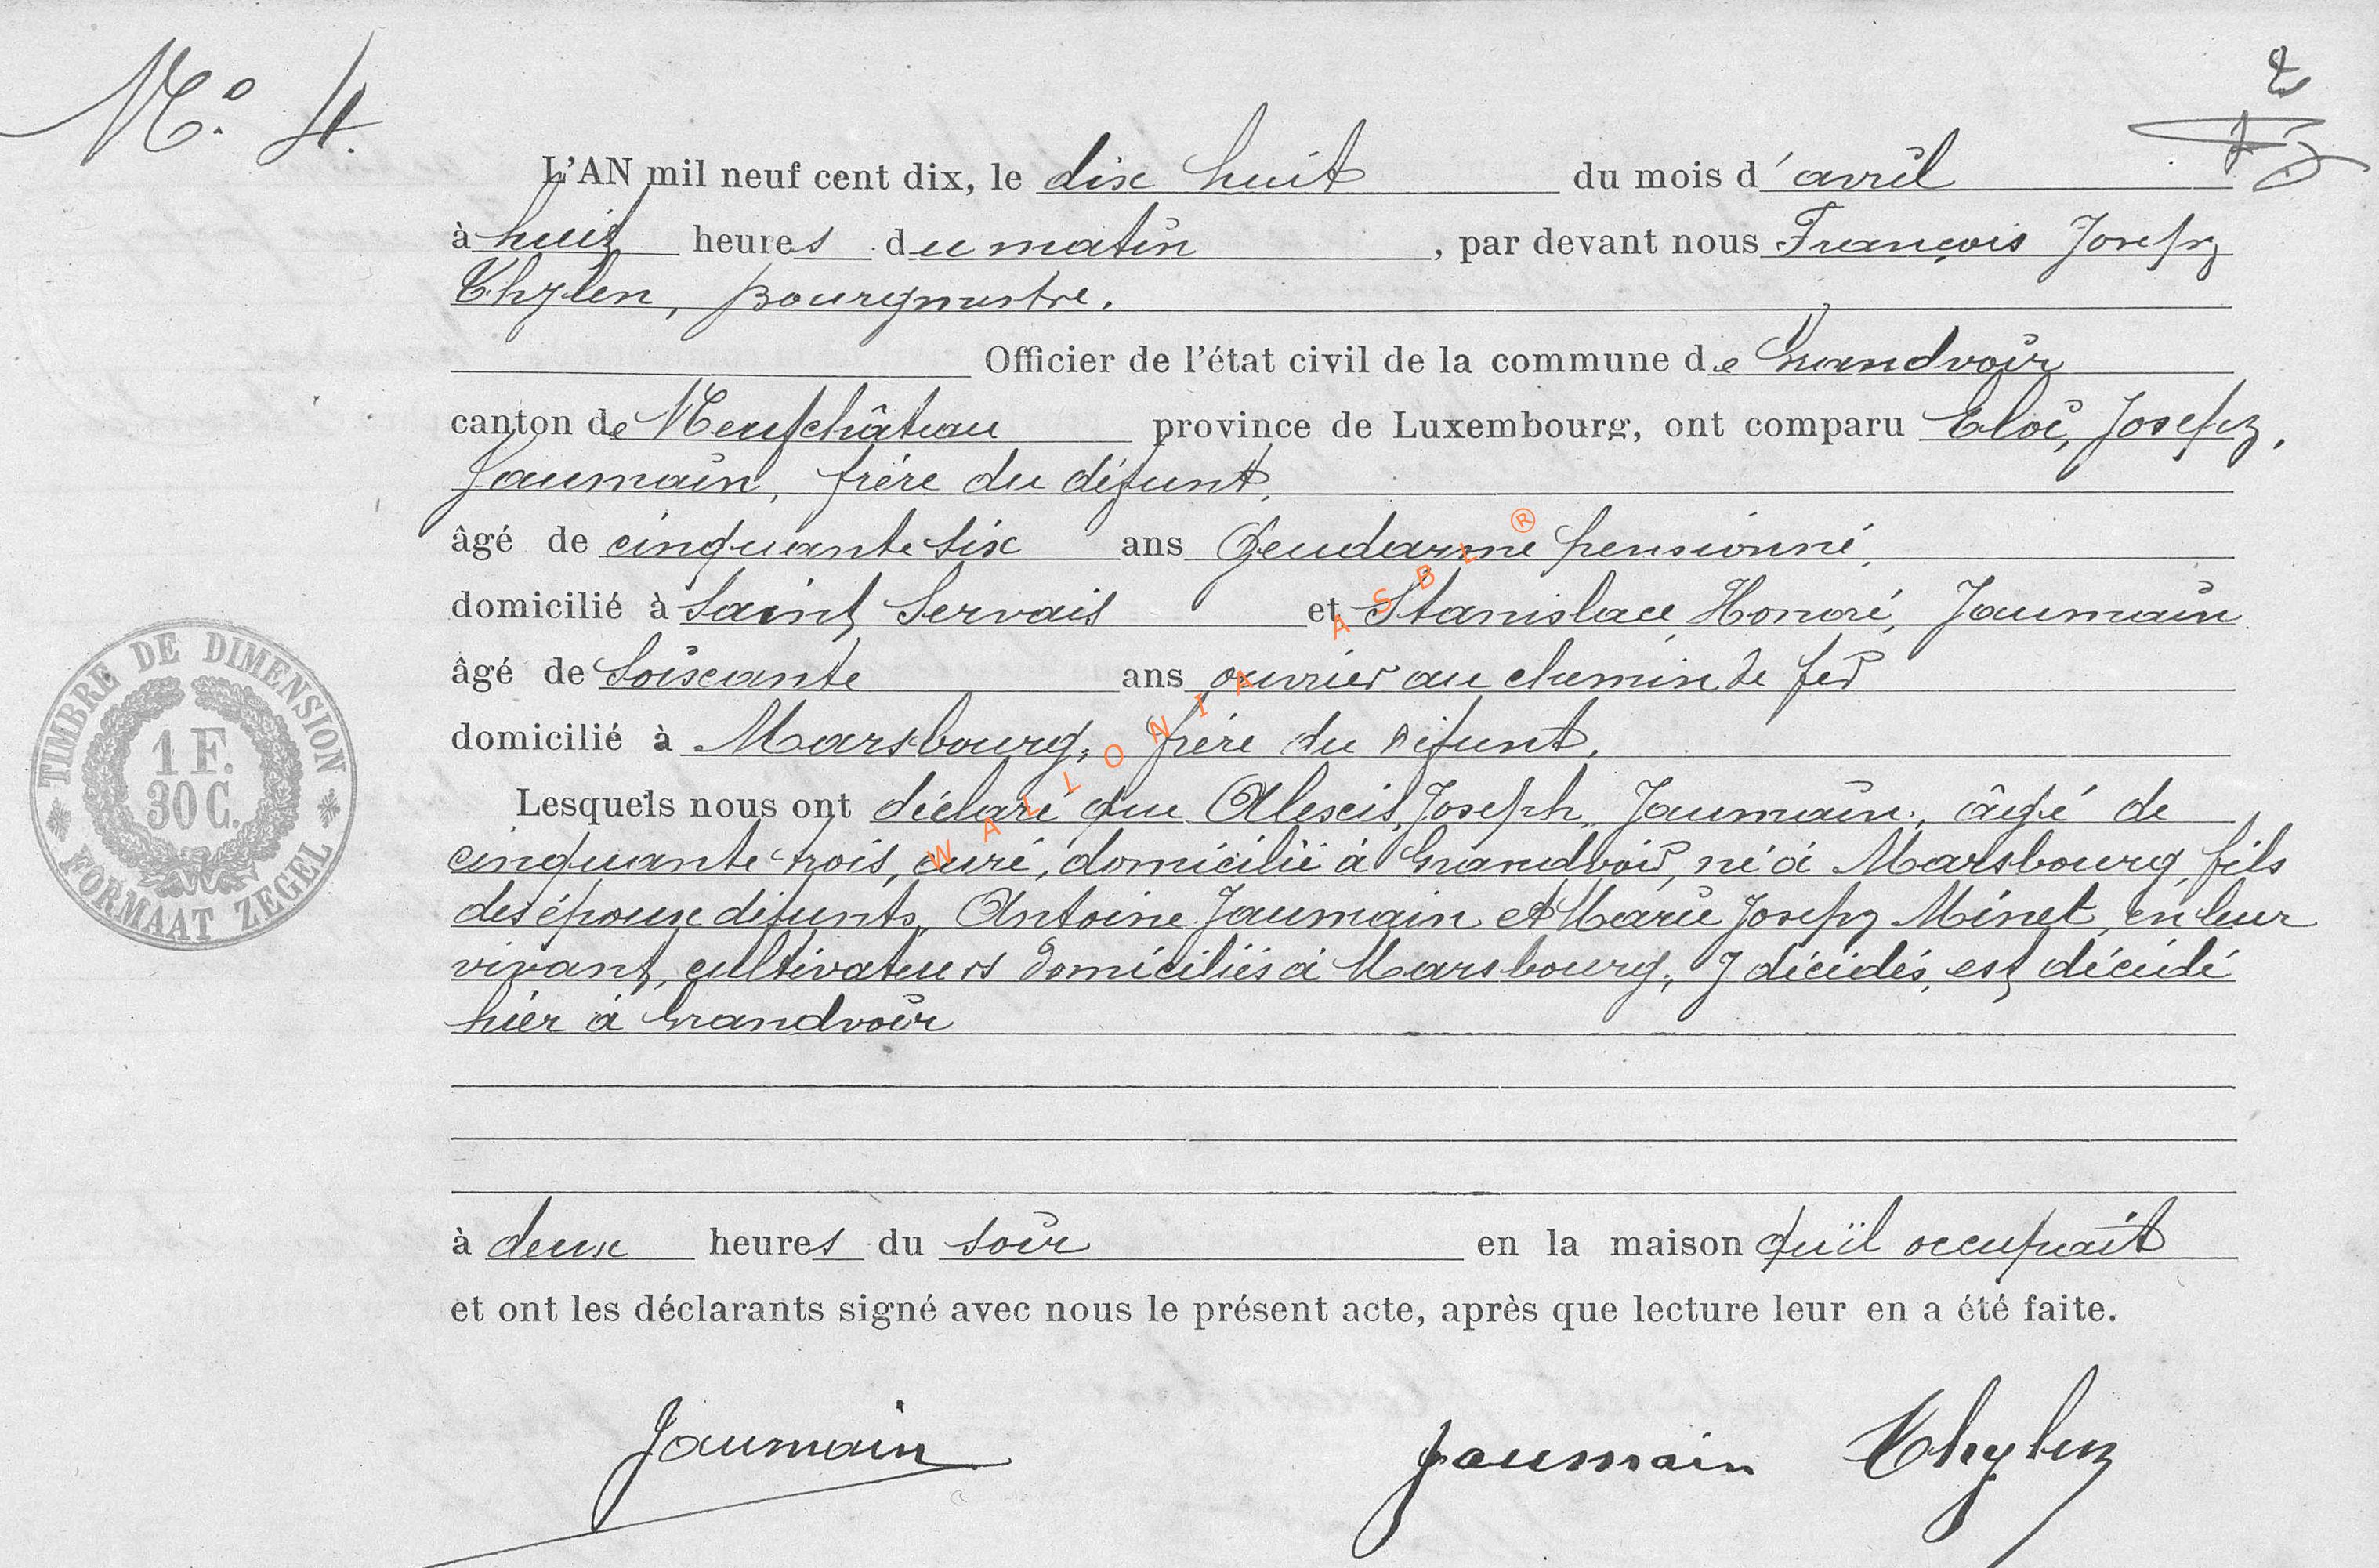 N° 4.
2
L'AN mil neuf cent dix, le dix huit du mois d'avril
à huit heures du matin, par devant nous François Joseph
Thylen, Bourgmestre.
Officier de l'état civil de la commune de Grandvoir
canton de Neufchâteau province de Luxembourg, ont comparu Eloi, Joseph,
Jaumain, frère du défunt,
âgé de cinquante six ans Gendarme pensionné,
domicilié à Saint Servais et Stanislace, Honoré, Jaumain
âgé de Soixante ans ouvrier au chemin de fer
domicilié à Marsbourg, frère du défunt.
Lesquels nous ont déclaré que Alexis, Joseph, Jaumain, âgé de
cinquante trois, curé, domicilié à Grandvoir, né à Marsbourg, fils
des époux défunts, Antoine Jaumain et Marie Joseph Minet, en leur
vivant, cultivateurs domiciliés à Marsbourg, y décédés, est décédé
hier à Grandvoir
à deux heures du soir en la maison qu'il occupait
et ont les déclarants signé avec nous le présent acte, après que lecture leur en a été faite.
Jaumain Jaumain Thylen
TIMBRE DE DIMENSION
1 F.
30 C.
FORMAAT ZEGEL
WALLONIA ASBL ®